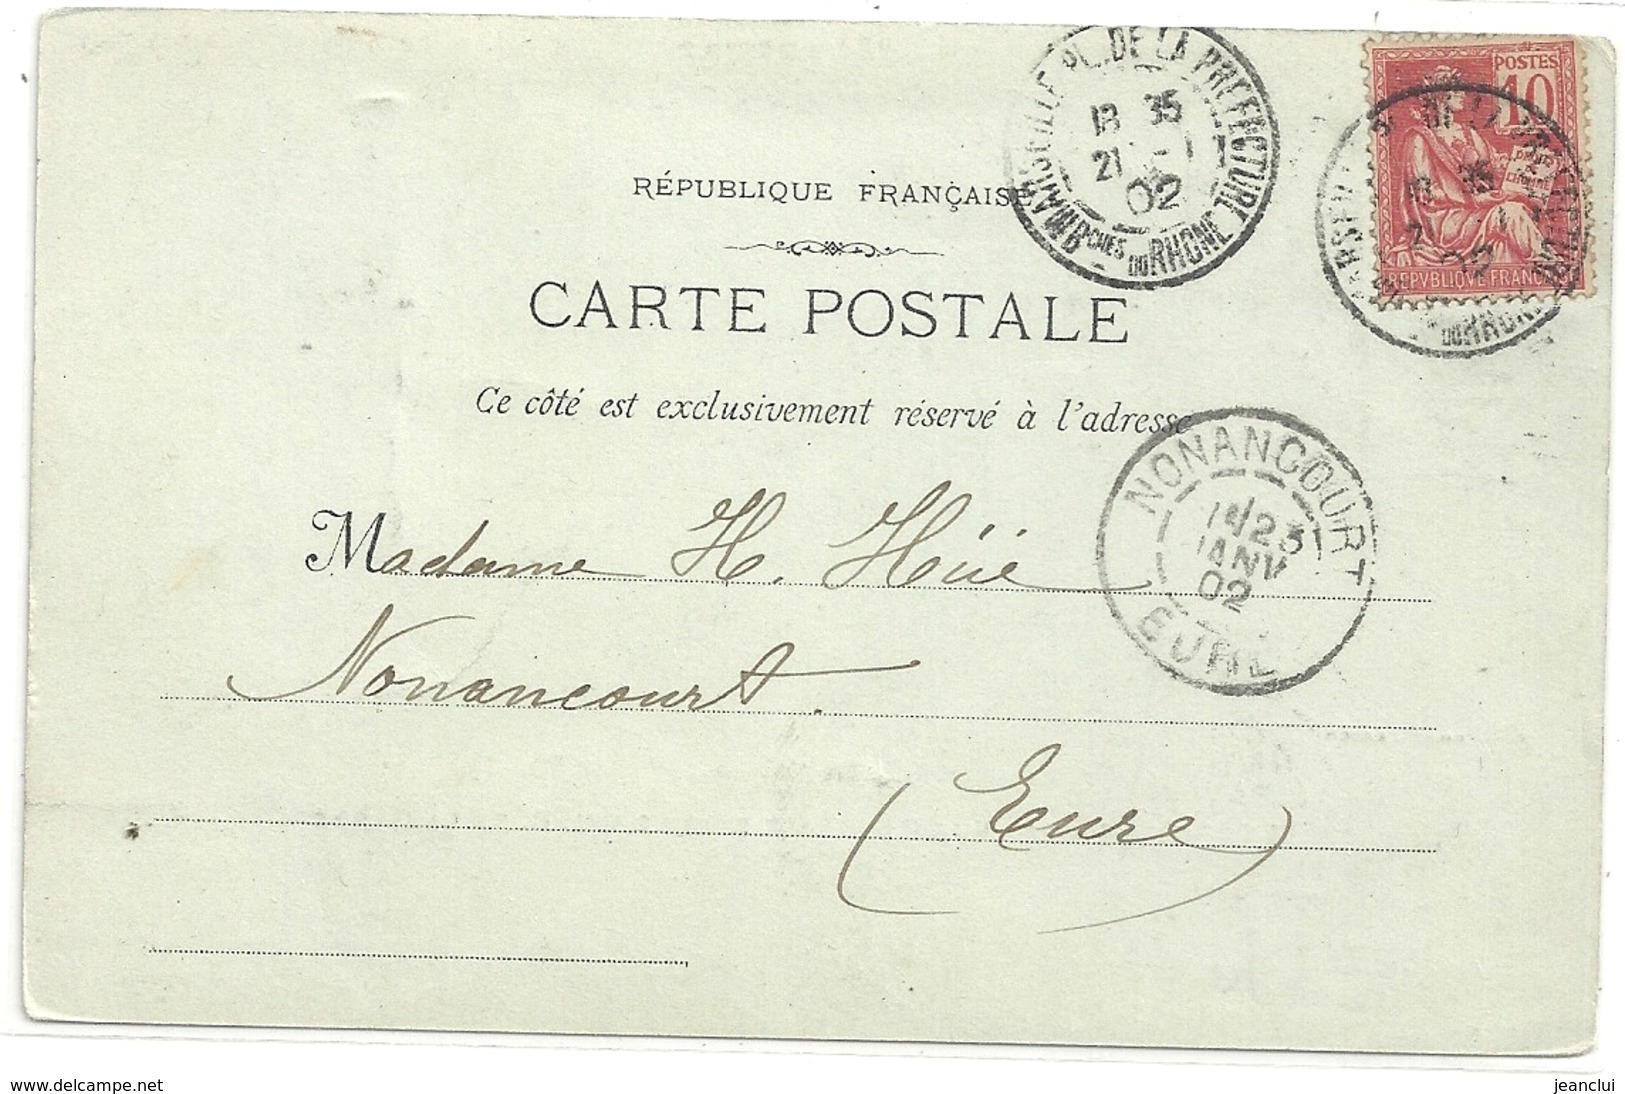 MARSEILLE PL. DE LA PRÉFECTURE
18 35
21 - 1
02
BCHES DU RHONE
POSTES
10
REPVBLIQVE FRANÇAISE
RÉPUBLIQUE FRANÇAISE
CARTE POSTALE
Ce côté est exclusivement réservé à l'adresse
NONANCOURT
23
JANV
02
EURE
Madame H. Hüe
Nonancourt.
(Eure)
www.delcampe.net
jeanclui